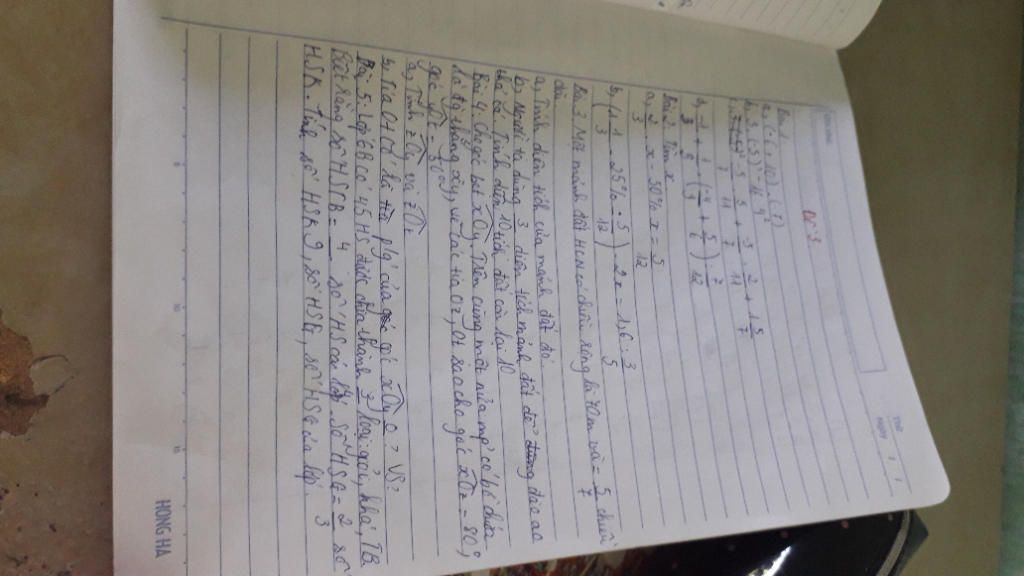 Thứ
Ngày
Đề 3
Bài 1
b, 3.(-5)² - 16 : 4²
d, -1/3 + 1/6 - (-4/3 + 5/6) - 7/12
Bài 2 Tìm x
a, 2/3 x - 50% x = 5/12
b, (1 1/3 - 25% . 5/12) - 2x = 1,6 : 3/5
Bài 3 Một mảnh đất HCN có chiều rộng là và = 5/7 chiều
dài
a, Tính diện tích của mảnh đất đó.
b, Người ta dùng 3 diện tích mảnh đất đó đào ao
thả cá. Tính diện tích đất còn lại 10
Bài 4. Cho góc bẹt xOy. Trên cùng một nửa mp có bờ chứa
đg thẳng xy, vẽ các tia Oz, Ot sao cho góc xOz = 80°,
góc yOt = 30°
a, Tính zOy và zOt
b, Tia Ot có là tia p/g của góc zOy o? Vs?
Bài 5. Lớp 6B có 45 HS được chia thành 3 loại giỏi, khá, TB
Biết rằng số HSTB = 4 số HS cả lớp số HSG = 2/3 số
HSK. Tính số HSK, số HSG, số HSTB của lớp.
HONG HA